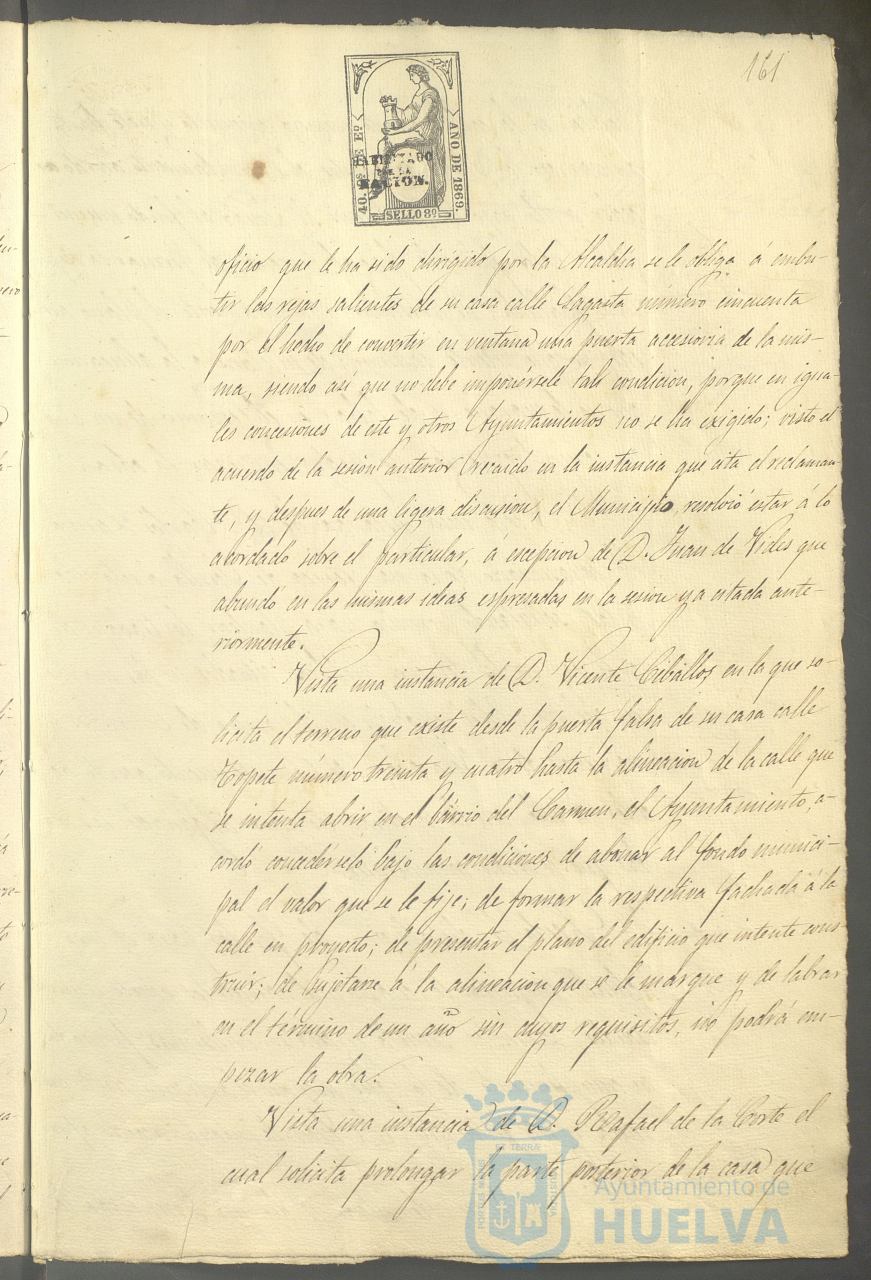 161
40. Ms DE Eº.
AÑO DE 1869.
HABILITADO
POR LA
NACION.
SELLO 8º
oficio que le ha sido dirigido por la Alcaldia se le obliga á embu-
tir las rejas salientes de su casa calle Sagasta número cincuenta
por el hecho de convertir en ventana una puerta accesioria de la mis-
ma, siendo así que no debe imponérsele tal condicion, porque en igua-
les concesiones de este y otros Ayuntamientos no se ha exigido; visto el
acuerdo de la sesion anterior recaido en la instancia que cita el reclaman-
te, y despues de una ligera discusion, el Municipio resolvió estar á lo
abordado sobre el particular, á escepcion de D. Juan de Vides que
abundó en las mismas ideas espresadas en la sesion ya citada ante-
riormente.
Vista una instancia de D. Vicente Ceballos, en la que so-
licita el terreno que existe desde la puerta falsa de su casa calle
Topete número treinta y cuatro hasta la alineacion de la calle que
se intenta abrir en el bárrio del Carmen, el Ayuntamiento, a-
cordó concedérselo bajo las condiciones de abonar al fondo munici-
pal el valor que se le fije; de formar la respectiva fachada á la
calle en proyecto; de presentar el plano del edificio que intente cons-
truir; de sujetarse á la alineacion que se le marque y de labrar
en el término de un año sin cuyos requisitos, no podrá em-
pezar la obra.
Vista una instancia de D. Rafael de la Corte el
cual solicita prolongar la parte posterior de la casa que
Ayuntamiento de
HUELVA